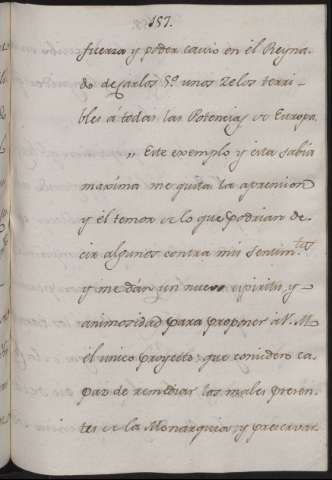 157.
fuerza y poder causó en el Reyna-
do de Carlos 5º unos zelos terri-
bles á todas las Potencias de Europa.
„ Este exemplo y esta sabia
maxima me quita la aprension
y el temor de lo que podrian de-
cir algunos contra mis sentim.tos
y me dán un nuevo espiritu, y
animosidad para proponer á V. M.
el unico proyecto, que considero ca-
paz de remediar los males presen-
tes de la Monarquia, y preservar